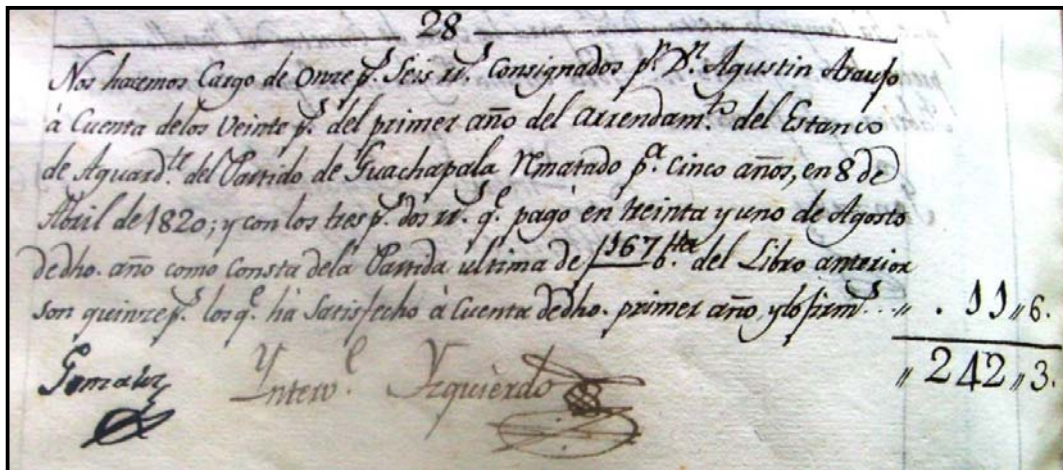 28
Nos hacemos Cargo de Onze p.s Seis rr.s Consignados p.r D.n Agustin Araujo
à Cuenta delos Veinte p.s del primer año del arrendam.to del Estanco
de Aguard.te del Partido de Guachapala Rmatado p.a Cinco años, en 8 de
Abril de 1820; y con los tres p.s dos rr.s q.e pagó en treinta y uno de Agosto
dedho. año como Consta dela Partida ultima de f 167 b.ta del Libro anterior
son quinze p.s los q.e há Satisfecho à Cuenta dedho. primer año, y lo firm.s .. „ . 11 „ 6.
„ 242 „ 3.
Gonzalez Ynterv.l Yzquierdo